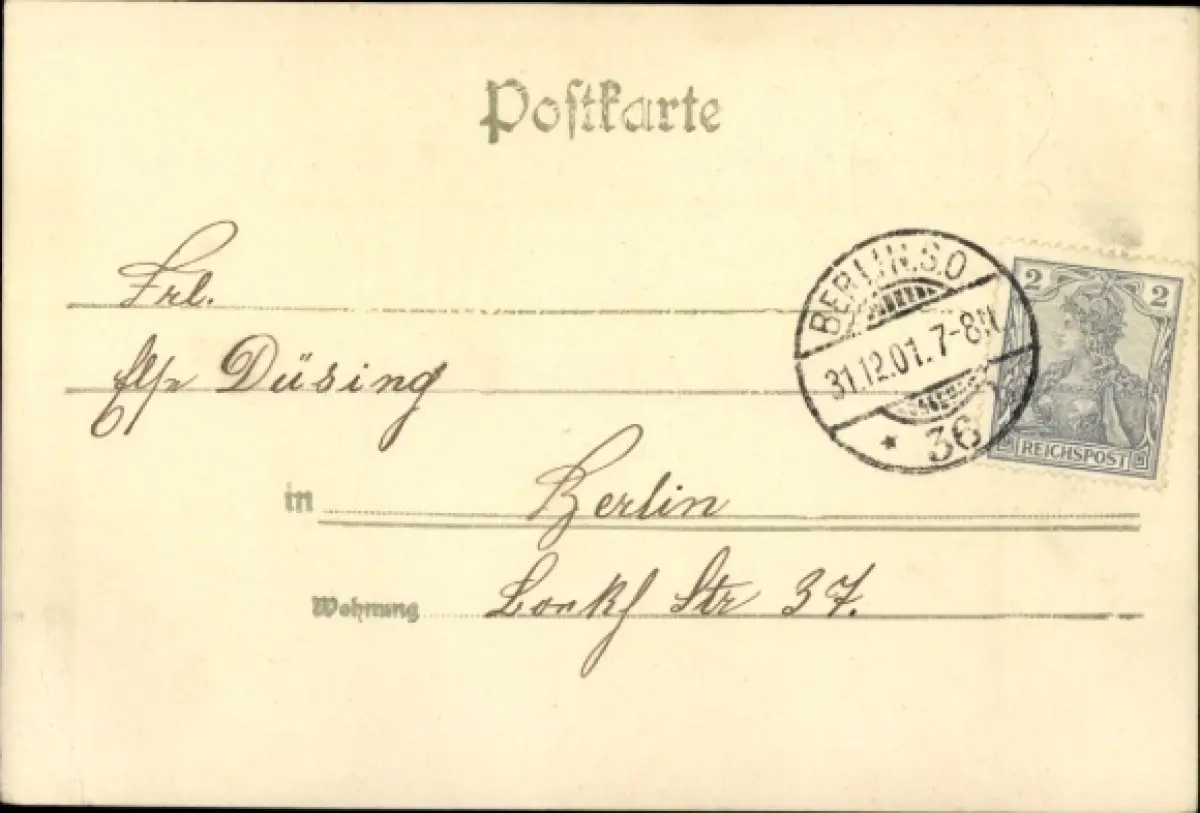 Postkarte
Frl.
Düsing
in Berlin
Wohnung Str 37.
BERLIN.S.O
31.12.01.7-8N
* 36
2 2
REICHSPOST